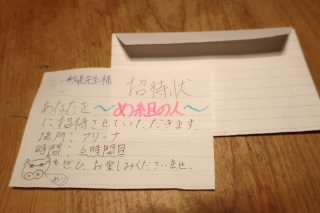 招待状
あなたを〜め組の人〜
に招待させていただきます.
場所:アリーナ
時間:6時間目
ぜひ、お楽しみくださいませ.